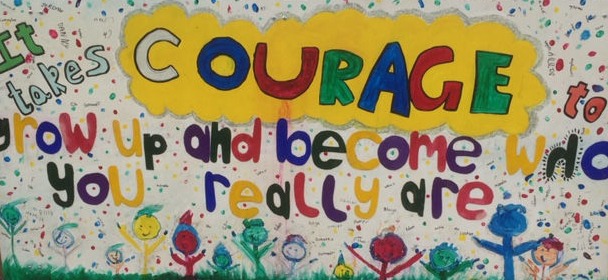 It takes COURAGE to
grow up and become who
you really are